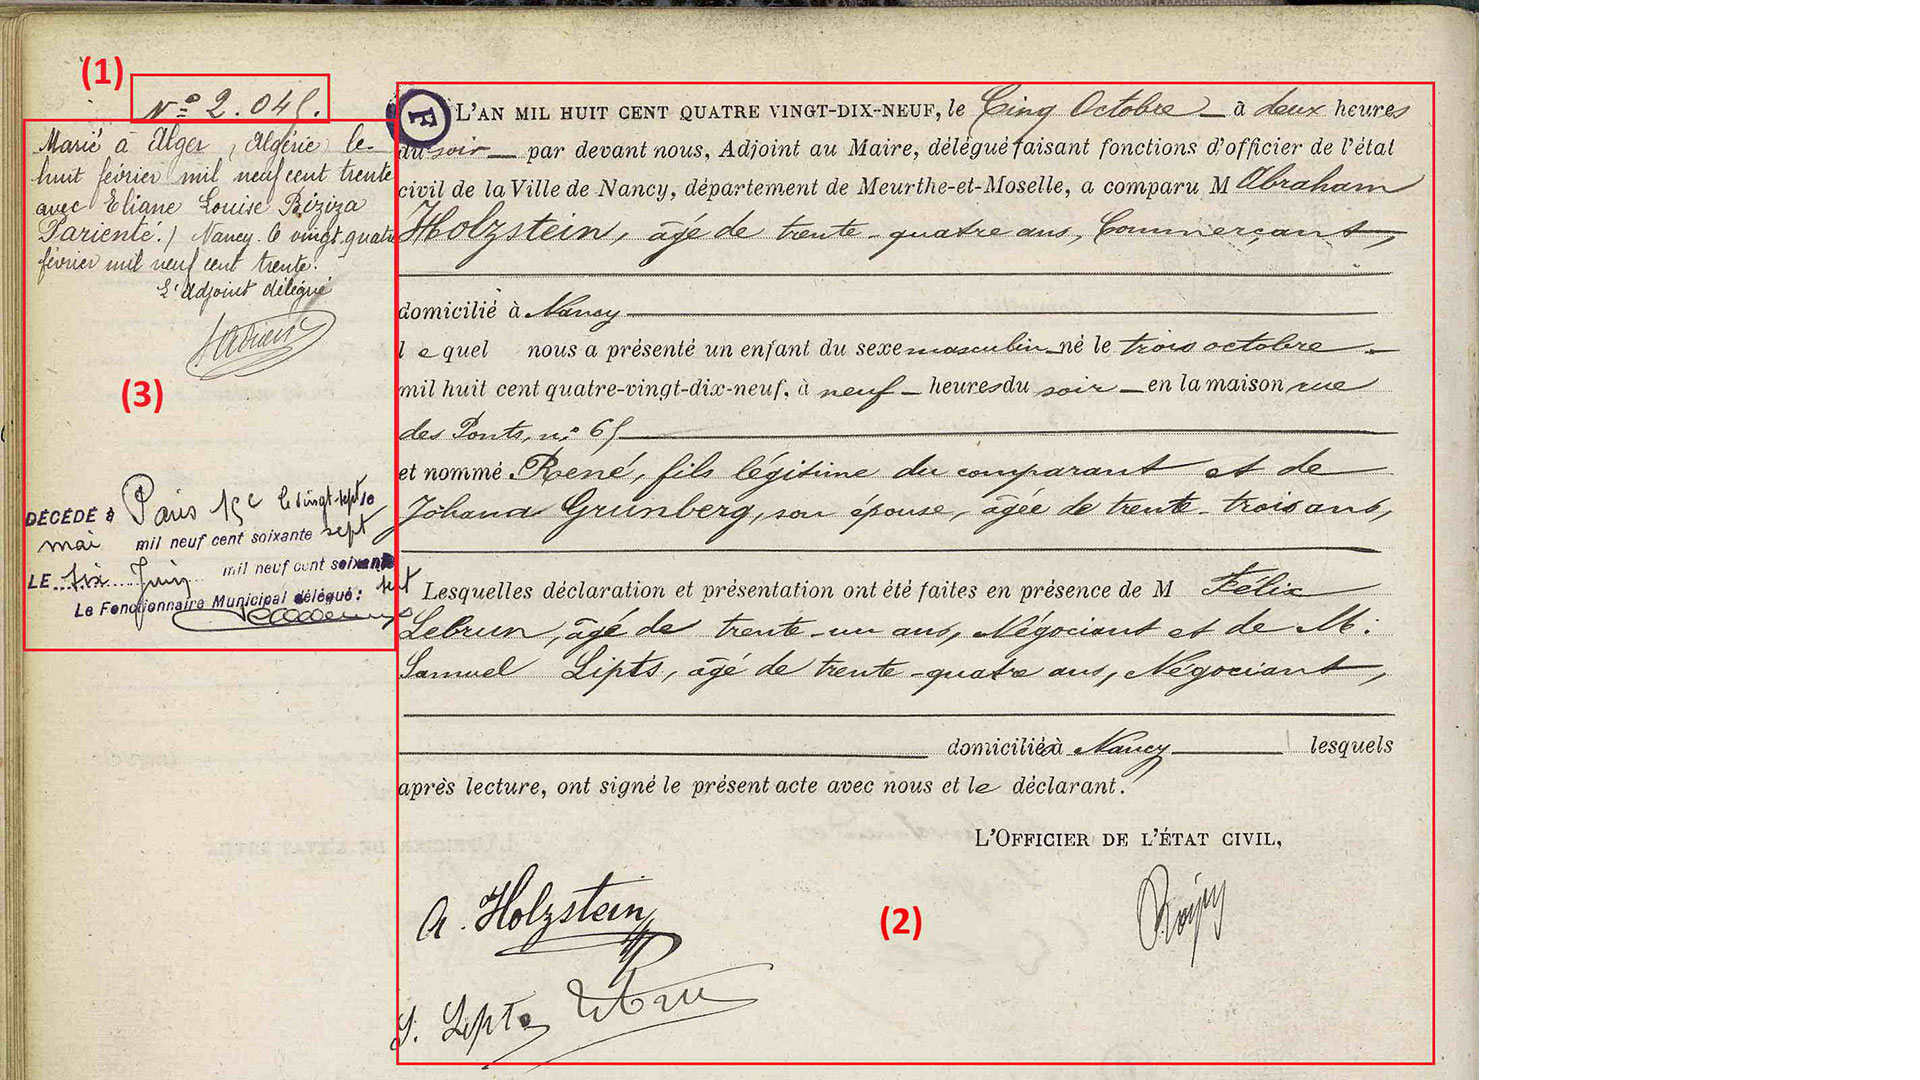 (1)
N° 2.045.
Marié à Alger, Algérie le
huit février mil neuf cent trente
avec Eliane Louise Biziza
Pariente./ Nancy le vingt quatre
février mil neuf cent trente.
L'adjoint délégué
(3)
DÉCÉDÉ à Paris 15e le vingt-sept
mai mil neuf cent soixante sept
LE six Juin mil neuf cent soixante sept
Le Fonctionnaire Municipal délégué :
F
L'AN MIL HUIT CENT QUATRE VINGT-DIX-NEUF, le Cinq Octobre à deux heures
du soir par devant nous, Adjoint au Maire, délégué faisant fonctions d'officier de l'état
civil de la Ville de Nancy, département de Meurthe-et-Moselle, a comparu M Abraham
Holzstein, âgé de trente-quatre ans, Commerçant,
domicilié à Nancy
lequel nous a présenté un enfant du sexe masculin né le trois octobre
mil huit cent quatre-vingt-dix-neuf, à neuf heures du soir en la maison rue
des Ponts, n° 65
et nommé René, fils légitime du comparant et de
Johana Grunberg, son épouse, âgée de trente-trois ans,
Lesquelles déclaration et présentation ont été faites en présence de M Félix
Lebrun, âgé de trente-un ans, Négociant et de M.
Samuel Lipts, âgé de trente-quatre ans, Négociant,
domiciliés à Nancy lesquels
après lecture, ont signé le présent acte avec nous et le déclarant.
L'OFFICIER DE L'ÉTAT CIVIL,
A. Holzstein
(2)
S. Lipts